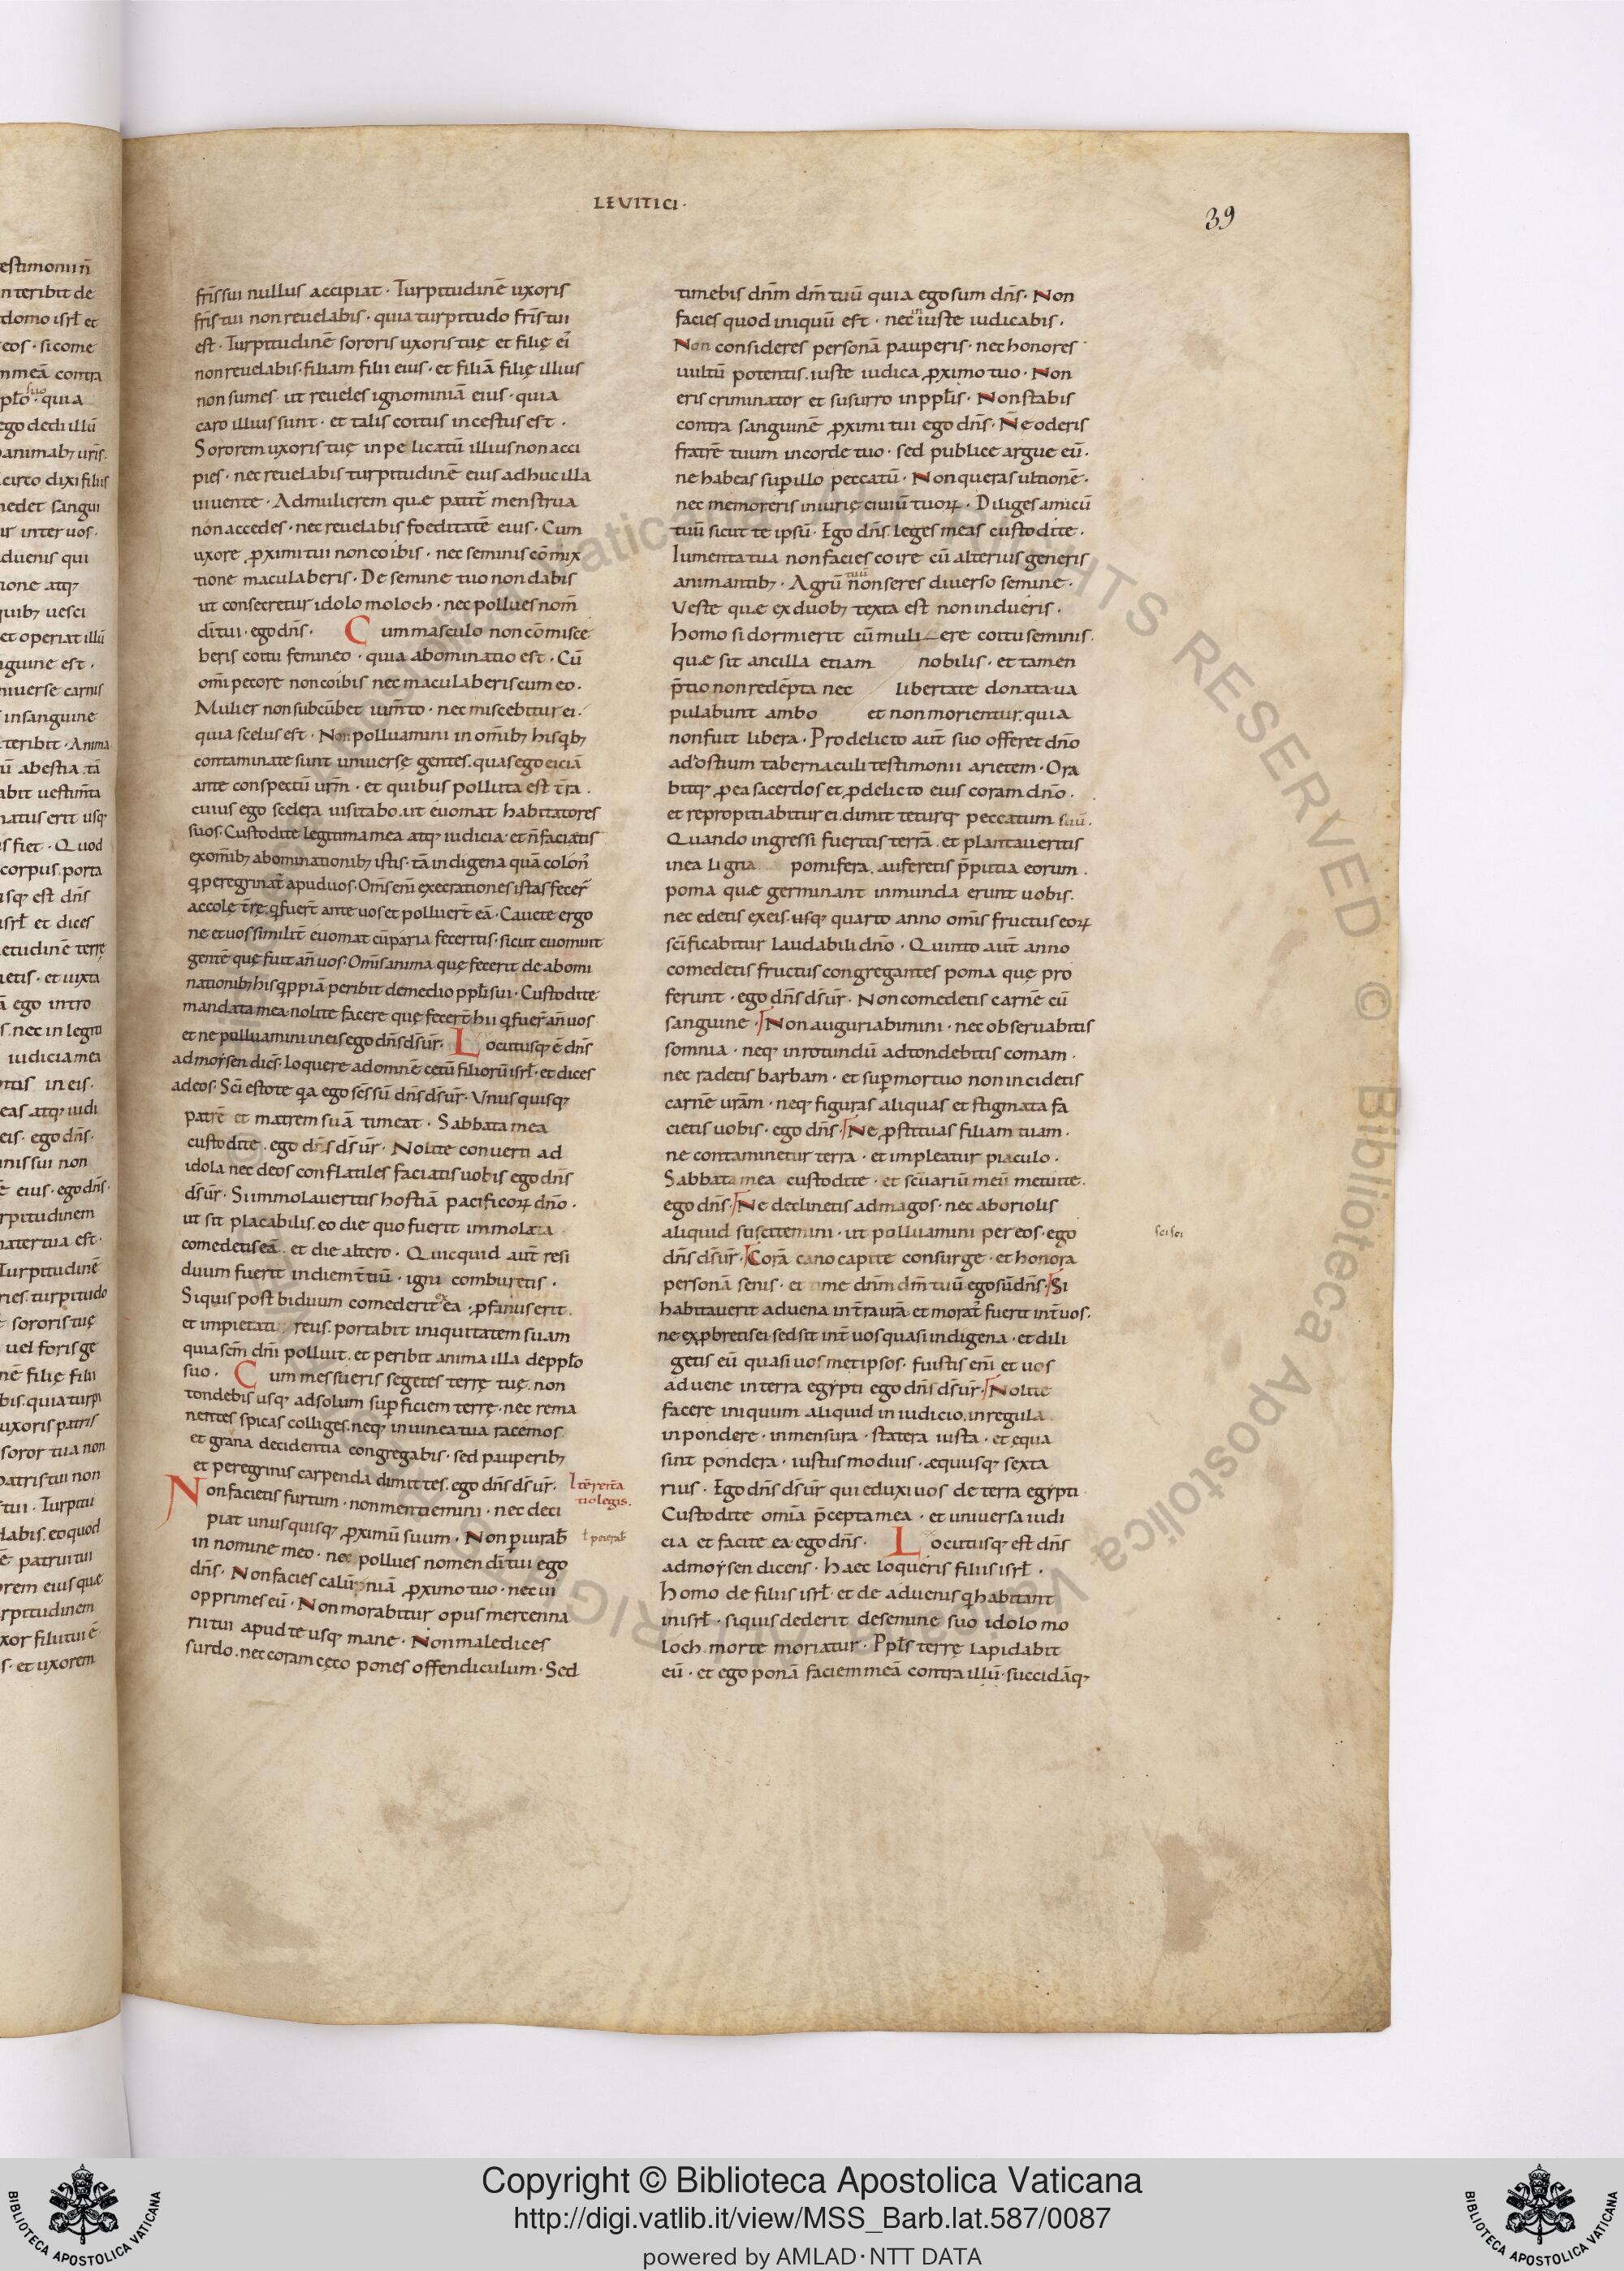 LEVITICI·
39
fr̄is sui nullus accipiat · Turpitudinē uxoris
fr̄is tui non reuelabis · quia turpitudo fr̄is tui
est · Turpitudinē sororis uxoris tuę et filię ei᾽
non reuelabis · filiam filii eius · et filiā filię illius
non sumes · ut reueles ignominiā eius · quia
caro illius sunt · et talis coitus incestus est ·
Sororem uxoris tuę in pelicatū illius non acci
pies · nec reuelabis turpitudinē eius adhuc illa
uiuente · Ad mulierem quæ patit᷑ menstrua
non accedes · nec reuelabis foeditatē eius · Cum
uxore ꝓximi tui non coibis · nec seminis cōmix
tione maculaberis · De semine tuo non dabis
ut consecretur idolo moloch · nec pollues nom̄
dī tui · ego dn̄s · Cum masculo non cōmisce
beris coitu femineo · quia abominatio est · Cū
om̄i pecore non coibis nec maculaberis cum eo ·
Mulier non subcūbet ium̄to · nec miscebitur ei ·
quia scelus est · Non polluamini in om̄ibꝫ his qͥbꝫ
contaminate sunt uniuersę gentes · quas ego eiciā
ante conspectū ur̄m · et quibus polluta est t̄ra ·
cuius ego scelera uisitabo · ut euomat habitatores
suos · Custodite legitima mea atqꝫ iudicia · et n̄ faciatis
ex om̄ibꝫ abominationibꝫ istis · tā indigena quā colon᾽
qͥ peregrinat᷑ apud uos · Om̄s eni᷑ execrationes istas fecer᷑
accolę t̄rę qͥ fuer᷑t ante uos et polluer᷑t eā · Cauete ergo
ne et uos similit᷑ euomat cū paria feceritis · sicut euomuit
gentē quę fuit an̄ uos · Om̄is anima quę fecerit de abomi
nationibꝫ his qͥppiā peribit de medio ppl̄i sui · Custodite
mandata mea · nolite facere quę fecer᷑t hii qͥ fuer᷑ an̄ uos
et ne polluamini in eis ego dn̄s ds̄ ur̄ · Locutusqꝫ ē dn̄s
ad moẏsen dic̄s · loquere ad omnē cetū filiorū isrł · et dices
ad eos · Sc̄i estote qͥa ego sc̄s sū dn̄s ds̄ ur̄ · Unusquisqꝫ
patrē et matrem suā timeat · Sabbata mea
custodite · ego dn̄s ds̄ ur̄ · Nolite conuerti ad
idola nec deos conflatiles faciatis uobis ego dn̄s
ds̄ ur̄ · Si immolaueritis hostiā pacificoꝝ dn̄o ·
ut sit placabilis · eo die quo fuerit immolata
comedetis eā · et die altero · Quicquid aut᷑ resi
duum fuerit in diem t̄tiū · igni comburetis ·
Siquis post biduum comederit ex ea ꝓfanus erit ·
et impietatis reus · portabit iniquitatem suam
quia sc̄m dn̄i polluit · et peribit anima illa de ppl̄o
suo · Cum messueris segetes terrę tuę · non
tondebis usqꝫ ad solum suꝑficiem terrę · nec rema
nentes spicas colliges · neqꝫ in uinea tua racemos
et grana decidentia congregabis · sed pauperibꝫ
et peregrinis carpenda dimittes · ego dn̄s ds̄ ur̄ ·
Non facietis furtum · non mentiemini · nec deci
piat unusquisqꝫ ꝓximū suum · Non ꝑiurab̄
in nomine meo · nec pollues nomen dī tui ego
dn̄s · Non facies calūpniā ꝓximo tuo · nec ui
opprimes eū · Non morabitur opus mercenna
rii tui apud te usqꝫ mane · Non maledices
surdo · nec coram cęco pones offendiculum · Sed
timebis dn̄m dm̄ tuū quia ego sum dn̄s · Non
facies quod iniquū est · nec iniuste iudicabis ·
Non consideres personā pauperis · nec honores
uultū potentis · iuste iudica ꝓximo tuo · Non
eris criminator et susurro in ppl̄is · Non stabis
contra sanguinē ꝓximi tui ego dn̄s · Ne oderis
fratrē tuum in corde tuo · sed publice argue eū ·
ne habeas suꝑ illo peccatū · Non queras ultionē ·
nec memoreris iniurię ciuiū tuoꝝ · Diliges amicū
tuū sicut te ipsū · Ego dn̄s · leges meas custodite ·
Iumenta tua non facies coire cū alterius generis
animantibꝫ · Agrū tuū non seres diuerso semine ·
Veste quæ ex duobꝫ texta est non indueris ·
homo si dormierit cū muliere coitu seminis ·
quæ sit ancilla etiam nobilis · et tamen
p̄tio non redēpta nec libertate donata ua
pulabunt ambo et non morientur · quia
non fuit libera · Pro delicto aut᷑ suo offeret dn̄o
ad ostium tabernaculi testimonii arietem · Ora
bitqꝫ ꝓ ea sacerdos et ꝓ delicto eius coram dn̄o ·
et repropitiabitur ei · dimitteturqꝫ peccatum suū ·
Quando ingressi fueritis terrā · et plantaueritis
in ea ligna pomifera · auferetis p̄putia eorum ·
poma quæ germinant inmunda erunt uobis ·
nec edetis ex eis · usqꝫ quarto anno om̄is fructus eoꝝ
sc̄ificabitur laudabili dn̄o · Quinto aut᷑ anno
comedetis fructus congregantes poma quę pro
ferunt · ego dn̄s ds̄ ur̄ · Non comedetis carnē cū
sanguine · Non auguriabimini · nec obseruabitis
somnia · neqꝫ in rotundū adtondebitis comam ·
nec radetis barbam · et suꝑ mortuo non incidetis
carnē ur̄am · neqꝫ figuras aliquas et stigmata fa
cietis uobis · ego dn̄s · Ne ꝓstituas filiam tuam ·
ne contaminetur terra · et impleatur piaculo ·
Sabbata mea custodite · et sc̄uariū meū metuite ·
ego dn̄s · Ne declinetis ad magos · nec ab oriolis
aliquid suscitemini · ut polluamini per eos · ego
dn̄s ds̄ ur̄ · Corā cano capite consurge · et honora
personā senis · et time dn̄m dm̄ tuū ego sū dn̄s · Si
habitauerit aduena in t̄ra ur̄a · et morat᷑ fuerit int̄ uos ·
ne exprobretis ei · sed sit int̄ uos quasi indigena · et dili
getis eū quasi uosmetipsos · fuistis eni᷑ et uos
aduene in terra egẏpti ego dn̄s ds̄ ur̄ · Nolite
facere iniquum aliquid in iudicio · in regula
in pondere · in mensura · statera iusta · et ęqua
sint pondera · iustus modius · æquusqꝫ sexta
rius · Ego dn̄s ds̄ ur̄ qui eduxi uos de terra egẏpti ·
Custodite om̄ia p̄cepta mea · et uniuersa iudi
cia et facite ea · ego dn̄s · Locutusqꝫ est dn̄s
ad moẏsen dicens · haec loqueris filiis isrł ·
homo de filiis isrł · et de aduenis qͥ habitant
in isrł · siquis dederit de semine suo idolo mo
loch · morte moriatur · Ppl̄s terrę lapidabit
eū · et ego ponā faciem meā contra illū · succidāqꝫ